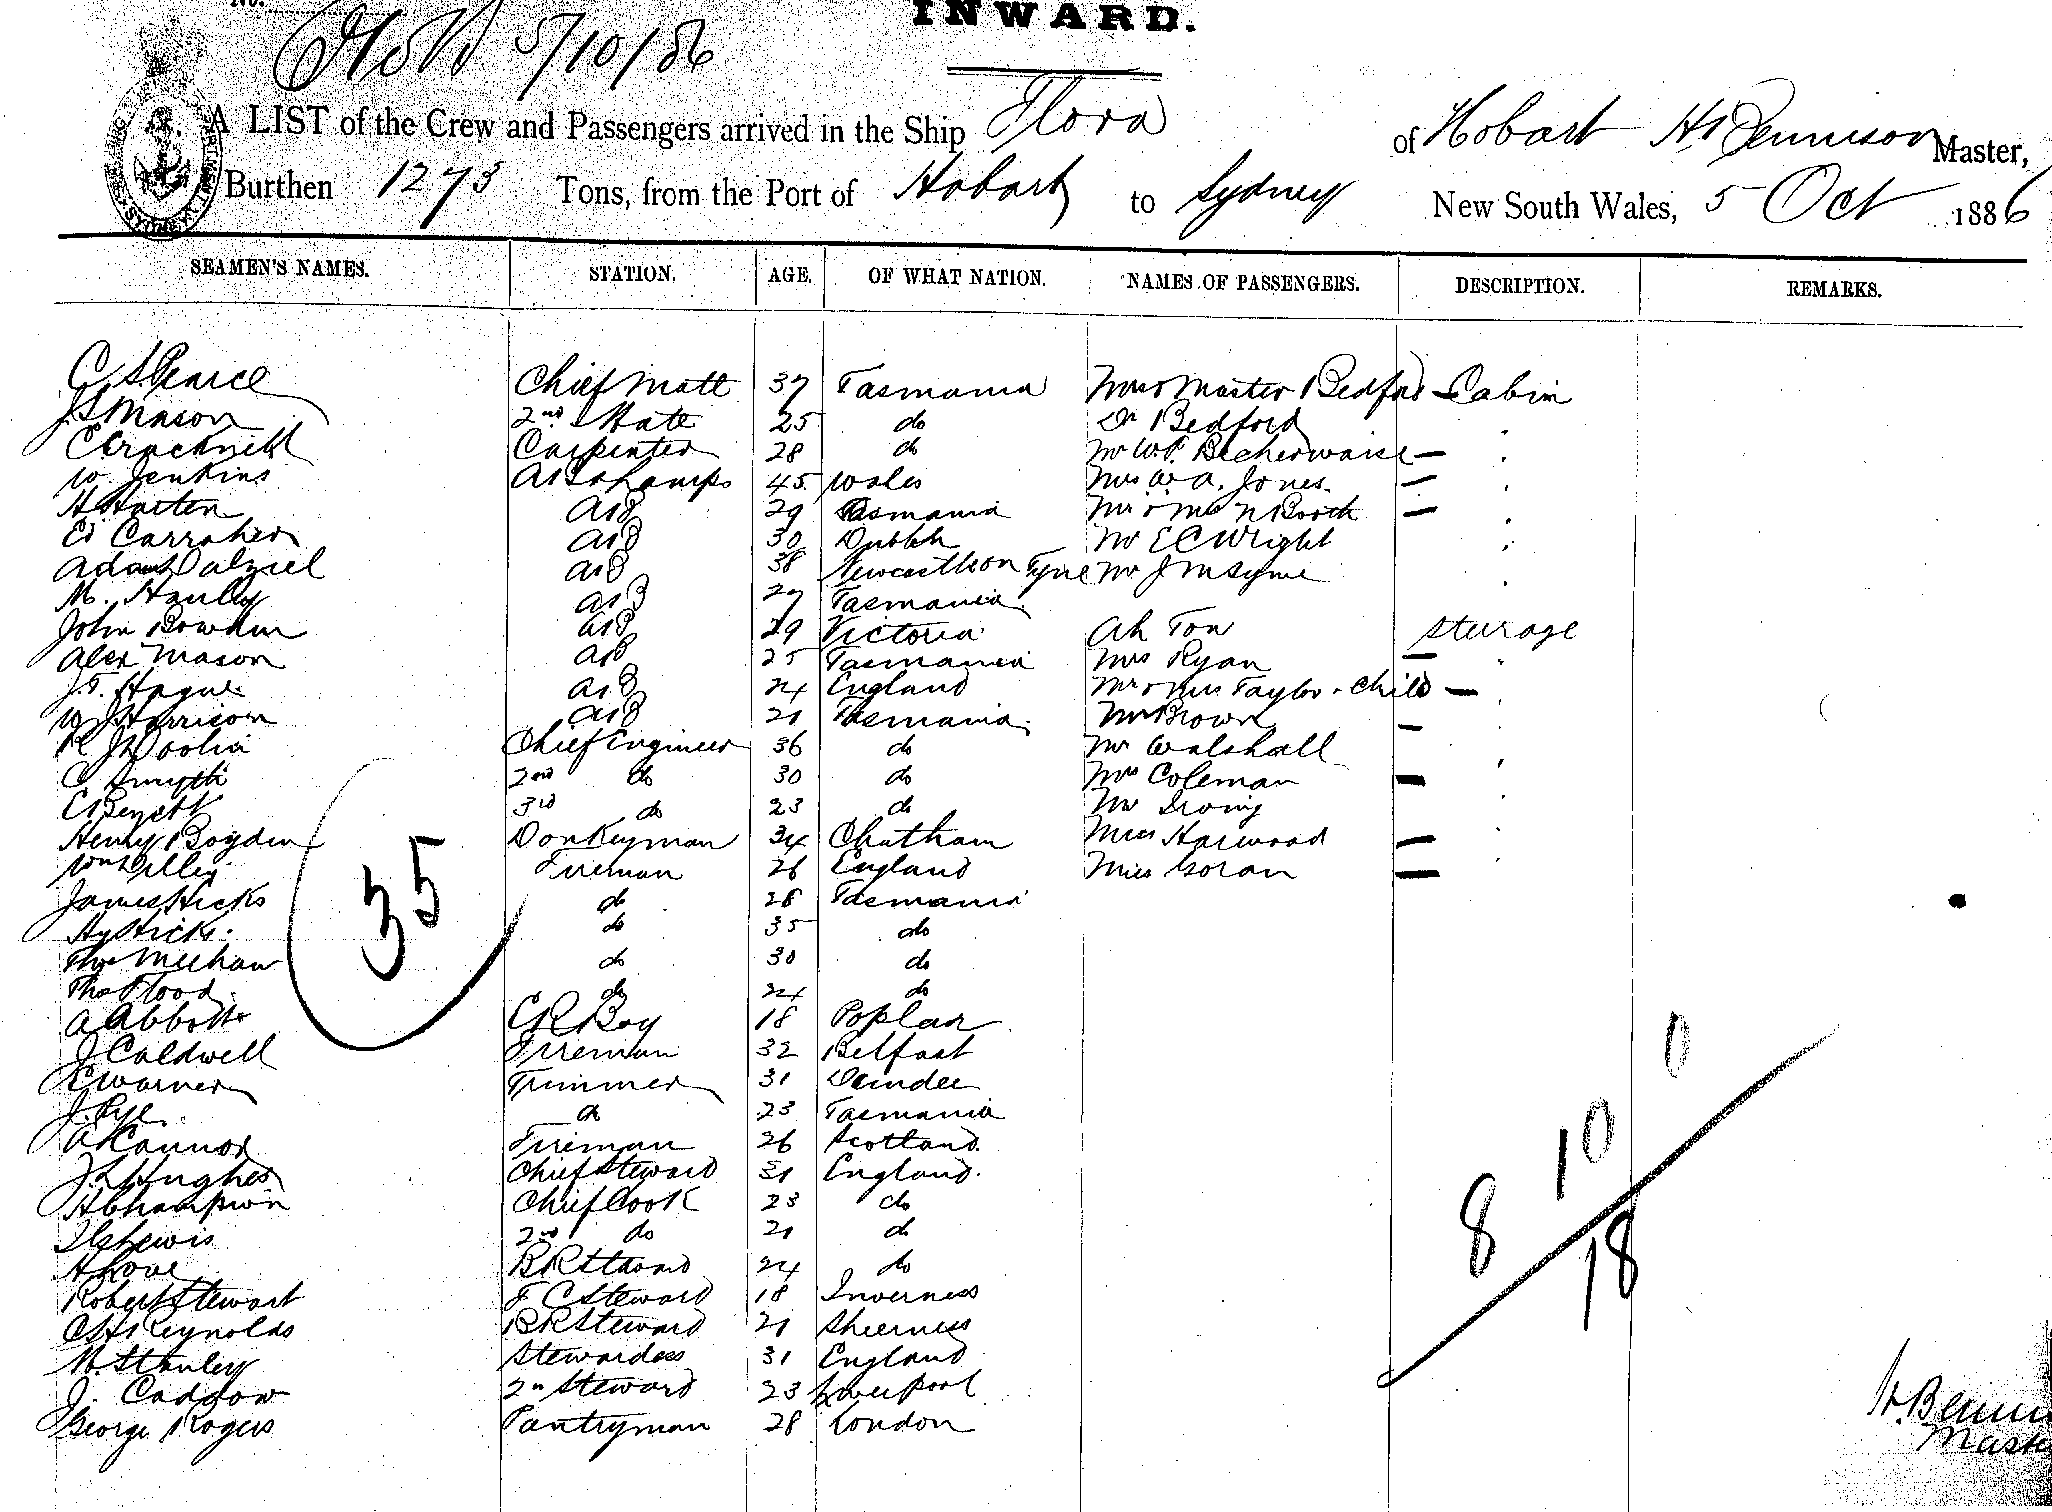 No.
INWARD.
5/10/86
A LIST of the Crew and Passengers arrived in the Ship Flora of Hobart Master,
Burthen 1273 Tons, from the Port of Hobart to Sydney New South Wales, 5 Oct 1886
SEAMEN'S NAMES. STATION. AGE. OF WHAT NATION. NAMES OF PASSENGERS. DESCRIPTION. REMARKS.
C S Pearce Chief Mate 37 Tasmania Master Bedford Cabin
J.S. Mason 2nd Mate 25 do Dr Bedford
C Cracknell Carpenter 28 do Mr W.P. Becherwaise —
W. Jenkins AB & Lamps 45 Wales Mrs W. A. Jones. —
H Harten AB 29 Tasmania Mr & Mrs N Booth —
Ed Carraher AB 30 Dublin Mr E C Wright
Adam Dalziel AB 38 Newcastle on Tyne Mr J M Syme
M. Hanley AB 27 Tasmania
John Bowden AB 29 Victoria Ah Ton Sturage
Alex Mason AB 25 Tasmania Mrs Ryan —
J.T. Hague AB 24 England Mr & Mrs Taylor & Child —
W J Harrison AB 21 Tasmania Mr Brown —
Chief Engineer 36 do Mr Walshall
C Smyth 2nd do 30 do Mrs Coleman —
3rd do 23 do Mr Irving
Henry Boyden Donkeyman 34 Chatham Miss Harwood —
Wm Lilley Fireman 26 England Miss Goran —
James Hicks do 28 Tasmania
Hy Hicks. do 35 do
35
Thos Meehan do 30 do
Thos Flood do 24 do
A Abbott ER Boy 18 Poplar
J Caldwell Fireman 32 Belfast
Warner Trimmer 31 Dundee
J. Pye. do 23 Tasmania
O'Connor Fireman 26 Scotland.
J. L Hughes Chief Steward 31 England.
H Champion Chief Cook 23 do
Lewis 2nd do 21 do
H Love BR Steward 24 do
Robert Stewart F C Steward 18 Inverness
C H Reynolds BR Steward 21 Sheerness
M. Stanley Stewardess 31 England
J. Cadgow 2n Steward 23 Liverpool
George Rogers Pantryman 28 London
0
10
8
18